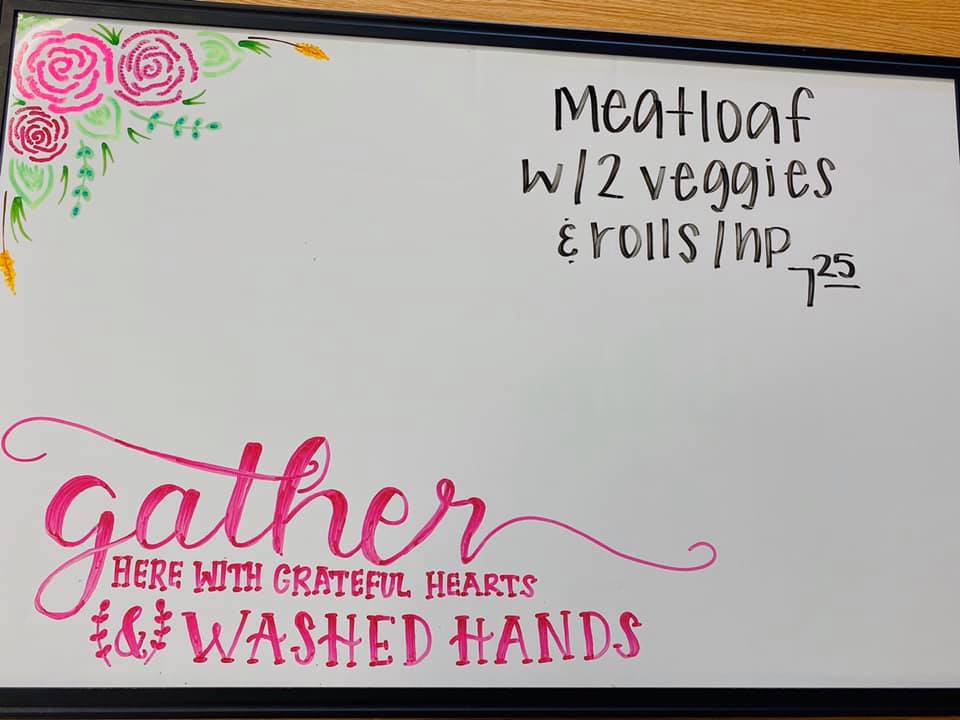 Meatloaf
w/2 veggies
& rolls/hp
7 25
gather
HERE WITH GRATEFUL HEARTS
& WASHED HANDS